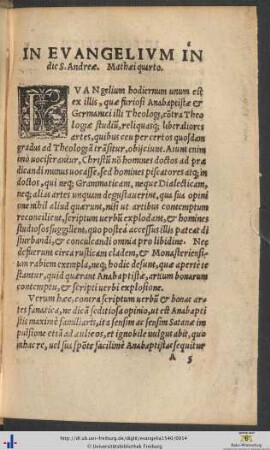 IN EVANGELIVM IN
die S. Andreæ. Mathæi quarto.
EVANgelium hodiernum unum est
ex illis, quæ furiosi Anabaptistæ &
Germanici illi Theologi, cõtra Theo
logiæ studiũ, reliquasq; liberaliores
artes, quibus ceu per certos quosdam
gradus ad Theologiã trãsitur, obijciunt. Aiunt enim
imò uociferantur, Christũ nõ homines doctos ad præ
dicandi munus uocasse, sed homines piscatores atq; in
doctos, qui neq; Grammaticam, neque Dialecticam,
neq; alias artes unquam degustauerint, qua sua opini
one nihil aliud quærunt, nisi ut artibus contemptum
reconcilient, scriptum uerbũ explodant, & homines
studiosos suggillent, quo postea accessus illis pateat di
sturbandi, & conculcandi omnia pro libidine. Neq
desierunt circa rusticam cladem, & Monasteriensi-
um rabiem exempla, neq; hodie desunt, quæ aperte te
stantur, quid quærant Anabaptistæ, artium bonarum
contemptu, & scripti uerbi explosione.
Verum hæc, contra scriptum uerbũ & bonas ar
tes fanatica, ne dicã seditiosa opinio, ut est Anabapti
stis maximè familiaris, ita sensim ac sensim Satanæ im
pulsione etiã ad aulicos, et ignobile uulgus abit, quo
rum
A 5
http://dl.ub.uni-freiburg.de/diglit/evangelia1540/0014
© Universitätsbibliothek Freiburg
Baden-Württemberg